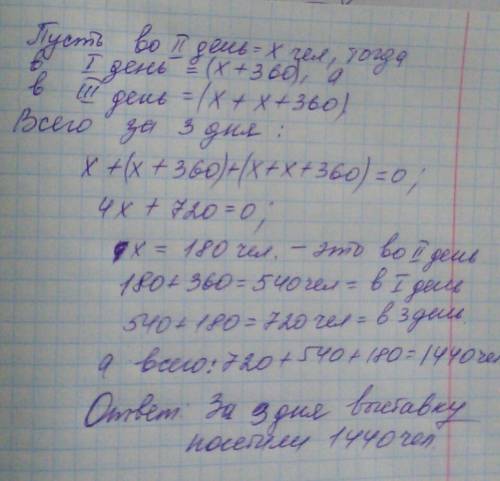 Пусть во II день = x чел, тогда
в I день = (x+360), а
в III день = (x + x + 360)
Всего за 3 дня :
x + (x + 360)+(x+x+360) = 0 ;
4x + 720 = 0 ;
x = 180 чел. – это во II день
180 + 360 = 540 чел = в I день
540 + 180 = 720 чел = в 3 день.
а всего: 720 + 540 + 180 = 1440 чел
Ответ: За 3 дня выставку
посетили 1440 чел.